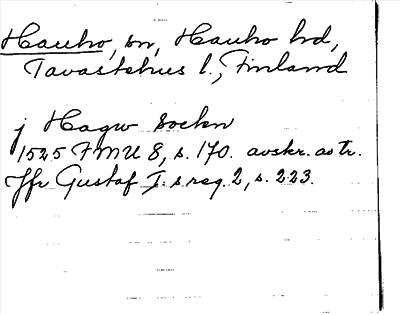 Hauho, sn, Hauho hd,
Tavastehus l., Finland
j Hagw sockn
1525 FMU 8, s. 170. avskr. astr.
Jfr Gustaf I:s reg. 2, s. 223.